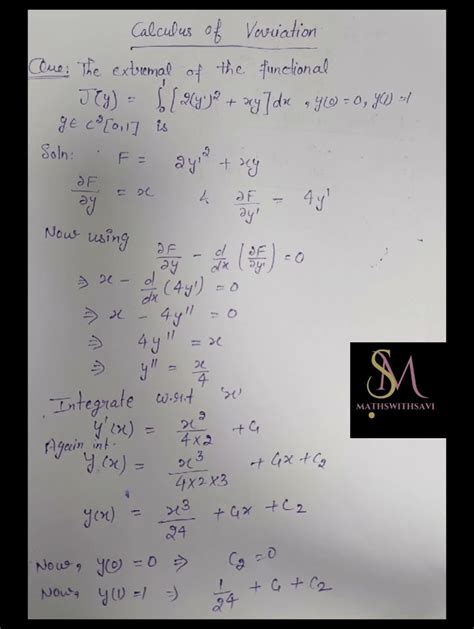 Calculus of Variation
Que: The extremal of the functional
J(y) = ∫₀¹ [2(y')² + xy] dx , y(0) = 0, y(1) = 1
y ∈ C²[0,1] is
Soln: F = 2y'² + xy
∂F/∂y = x & ∂F/∂y' = 4y'
Now using
∂F/∂y - d/dx (∂F/∂y') = 0
⇒ x - d/dx (4y') = 0
⇒ x - 4y'' = 0
⇒ 4y'' = x
⇒ y'' = x/4
Integrate w.r.t 'x'
y'(x) = x²/4×2 + C₁
Again int.
y(x) = x³/4×2×3 + C₁x + C₂
y(x) = x³/24 + C₁x + C₂
Now, y(0) = 0 ⇒ C₂ = 0
Now, y(1) = 1 ⇒ 1/24 + C₁ + C₂
SM
MATHSWITHSAVI